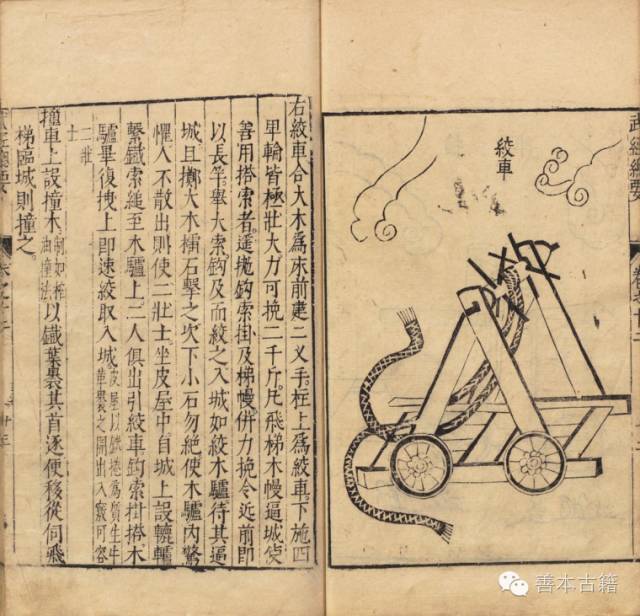 武經總要
絞車
右絞車合大木爲床前建二叉手柱上爲絞車下施四
卑輪皆極壯大力可挽二千斤凡飛梯木幔逼城使
善用搭索者遥抛鈎索掛及梯幔併力挽令近前即
以長竿舉大索鈎及而絞之入城如絞木驢待其逼
城且擲大木檑石擊之次下小石勿絶使木驢內驚
懼人不散出則使二壯士坐皮屋中自城上設轆轤
繫鐵索縋至木驢上二人俱出引絞車鈎索掛搭木
驢畢復拽上即速絞取入城皮屋以鐵捲爲質生牛革裹之開出入竅可容
二壯士
撞車上設撞木以鐵葉裹其首逐便移從伺飛
梯臨城則撞之
善本古籍